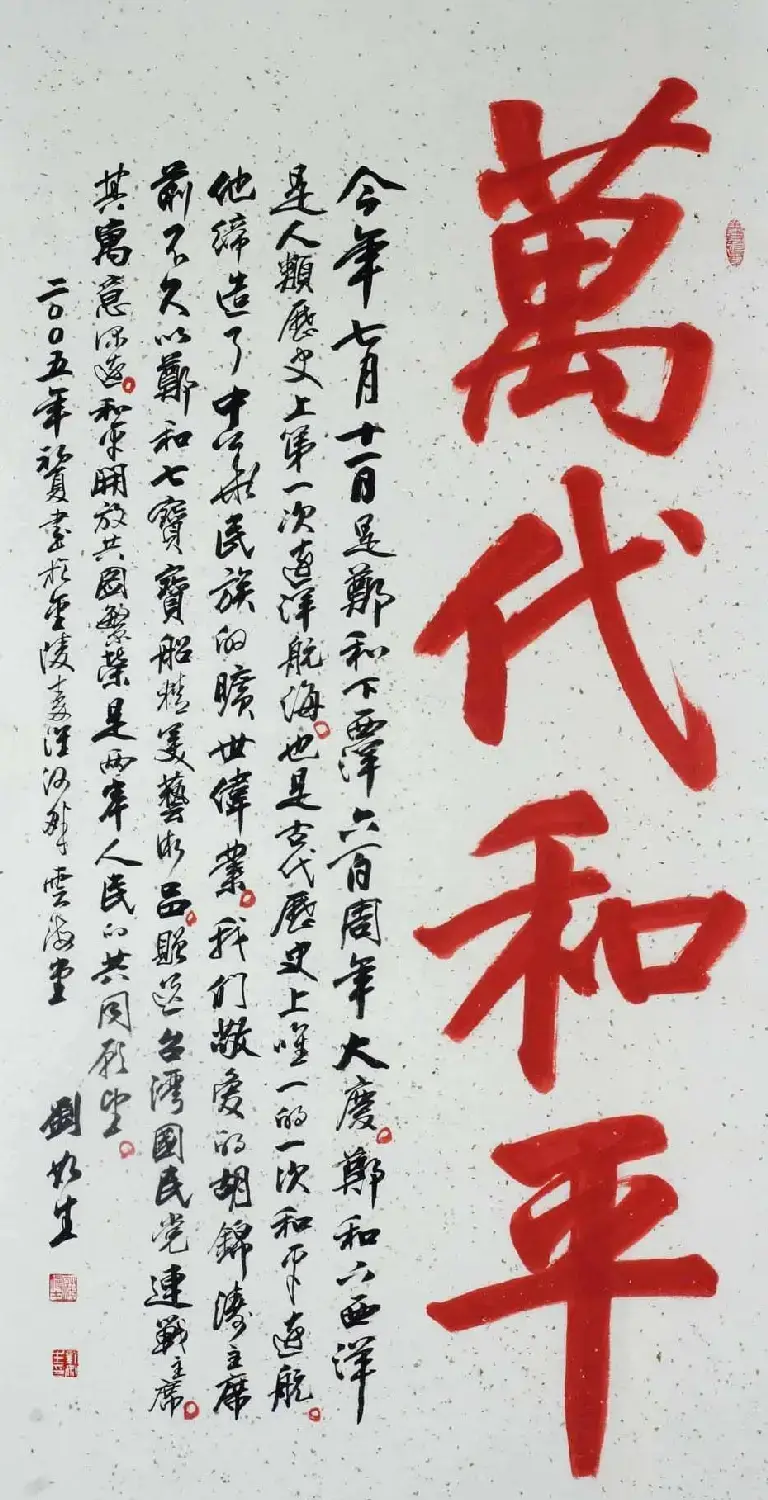 萬代和平
今年七月十一日是鄭和下西洋六百周年大慶。鄭和下西洋
是人類歷史上第一次遠洋航海。也是古代歷史上唯一的一次和平遠航。
他締造了中华民族的曠世偉業。我们敬爱的胡錦濤主席
前不久以鄭和七寶寶船精美藝術品。贈送台灣國民党連戰主席。
其寓意深遠。和平開放共圖繁榮是兩岸人民的共同願望。
二00五年賀書於金陵秦淮河畔雲海堂 劉如生